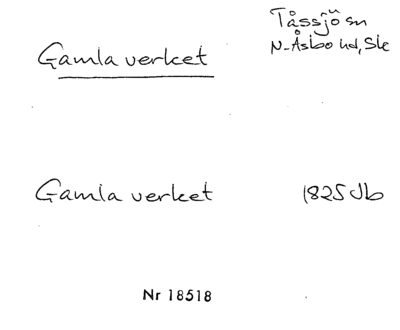 Tåssjö sn
Gamla verket
N-Åsbo hd, Sk
Gamla verket 1825 Jb
Nr 18518